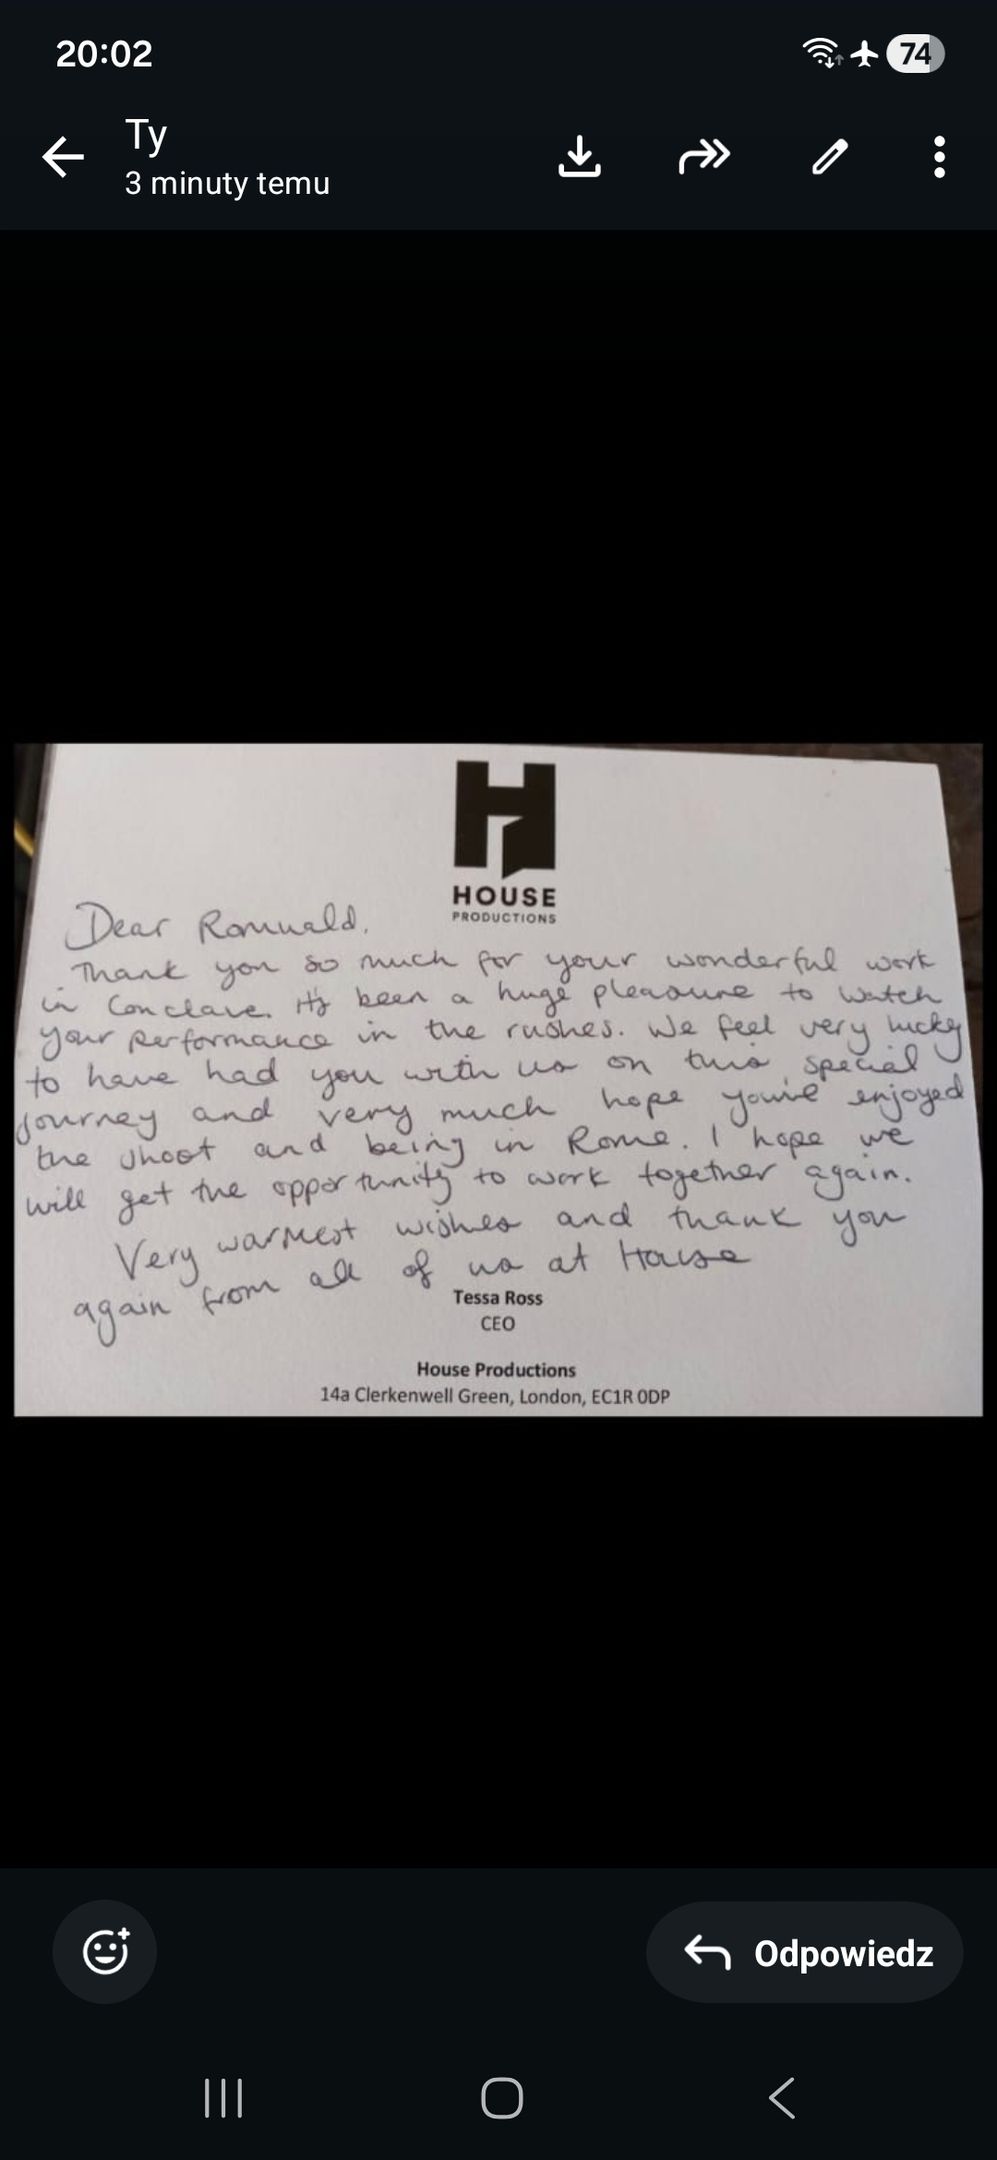 20:02
74
Ty
3 minuty temu
HOUSE
PRODUCTIONS
Dear Romuald,
Thank you so much for your wonderful work
in Conclave. It's been a huge pleasure to watch
your performance in the rushes. We feel very lucky
to have had you with us on this special
journey and very much hope you've enjoyed
the shoot and being in Rome. I hope we
will get the opportunity to work together again.
Very warmest wishes and thank you
again from all of us at House
Tessa Ross
CEO
House Productions
14a Clerkenwell Green, London, EC1R 0DP
Odpowiedz